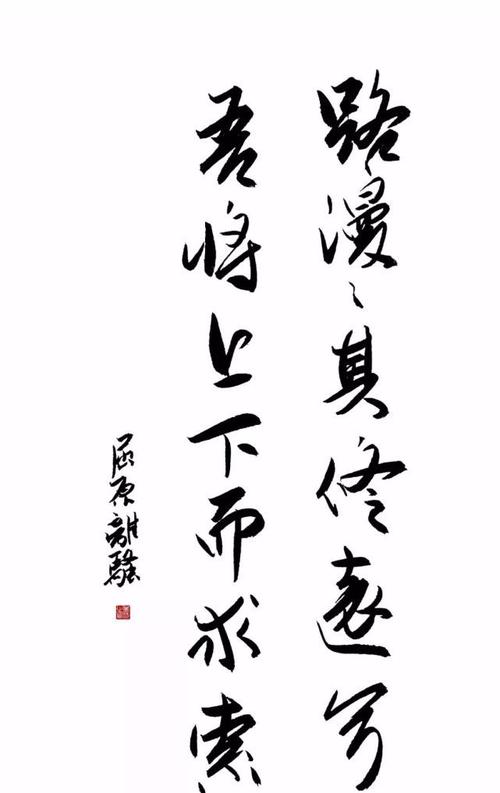 路漫〻其修遠兮
吾将上下而求索
屈原離騷